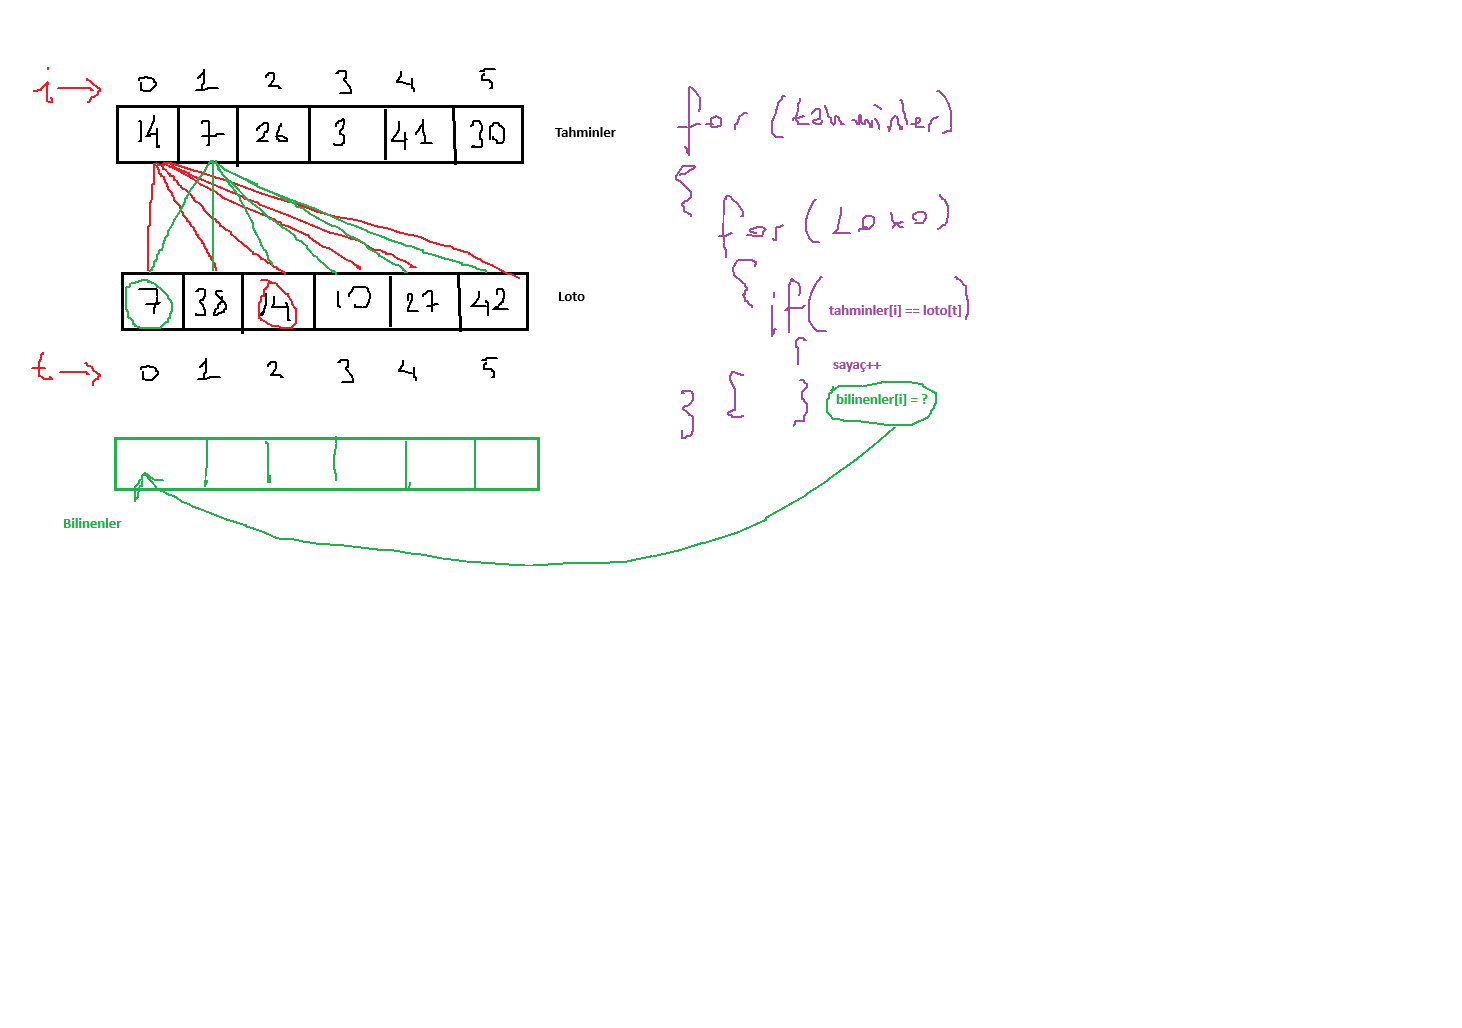 i → 0 1 2 3 4 5
14 7 26 3 41 30 Tahminler
7 38 14 10 27 42 Loto
t → 0 1 2 3 4 5
Bilinenler
for (tahminler)
{
for (Loto)
{
if( tahminler[i] == loto[t] )
{
sayaç++
bilinenler[i] = ?
}
}
}